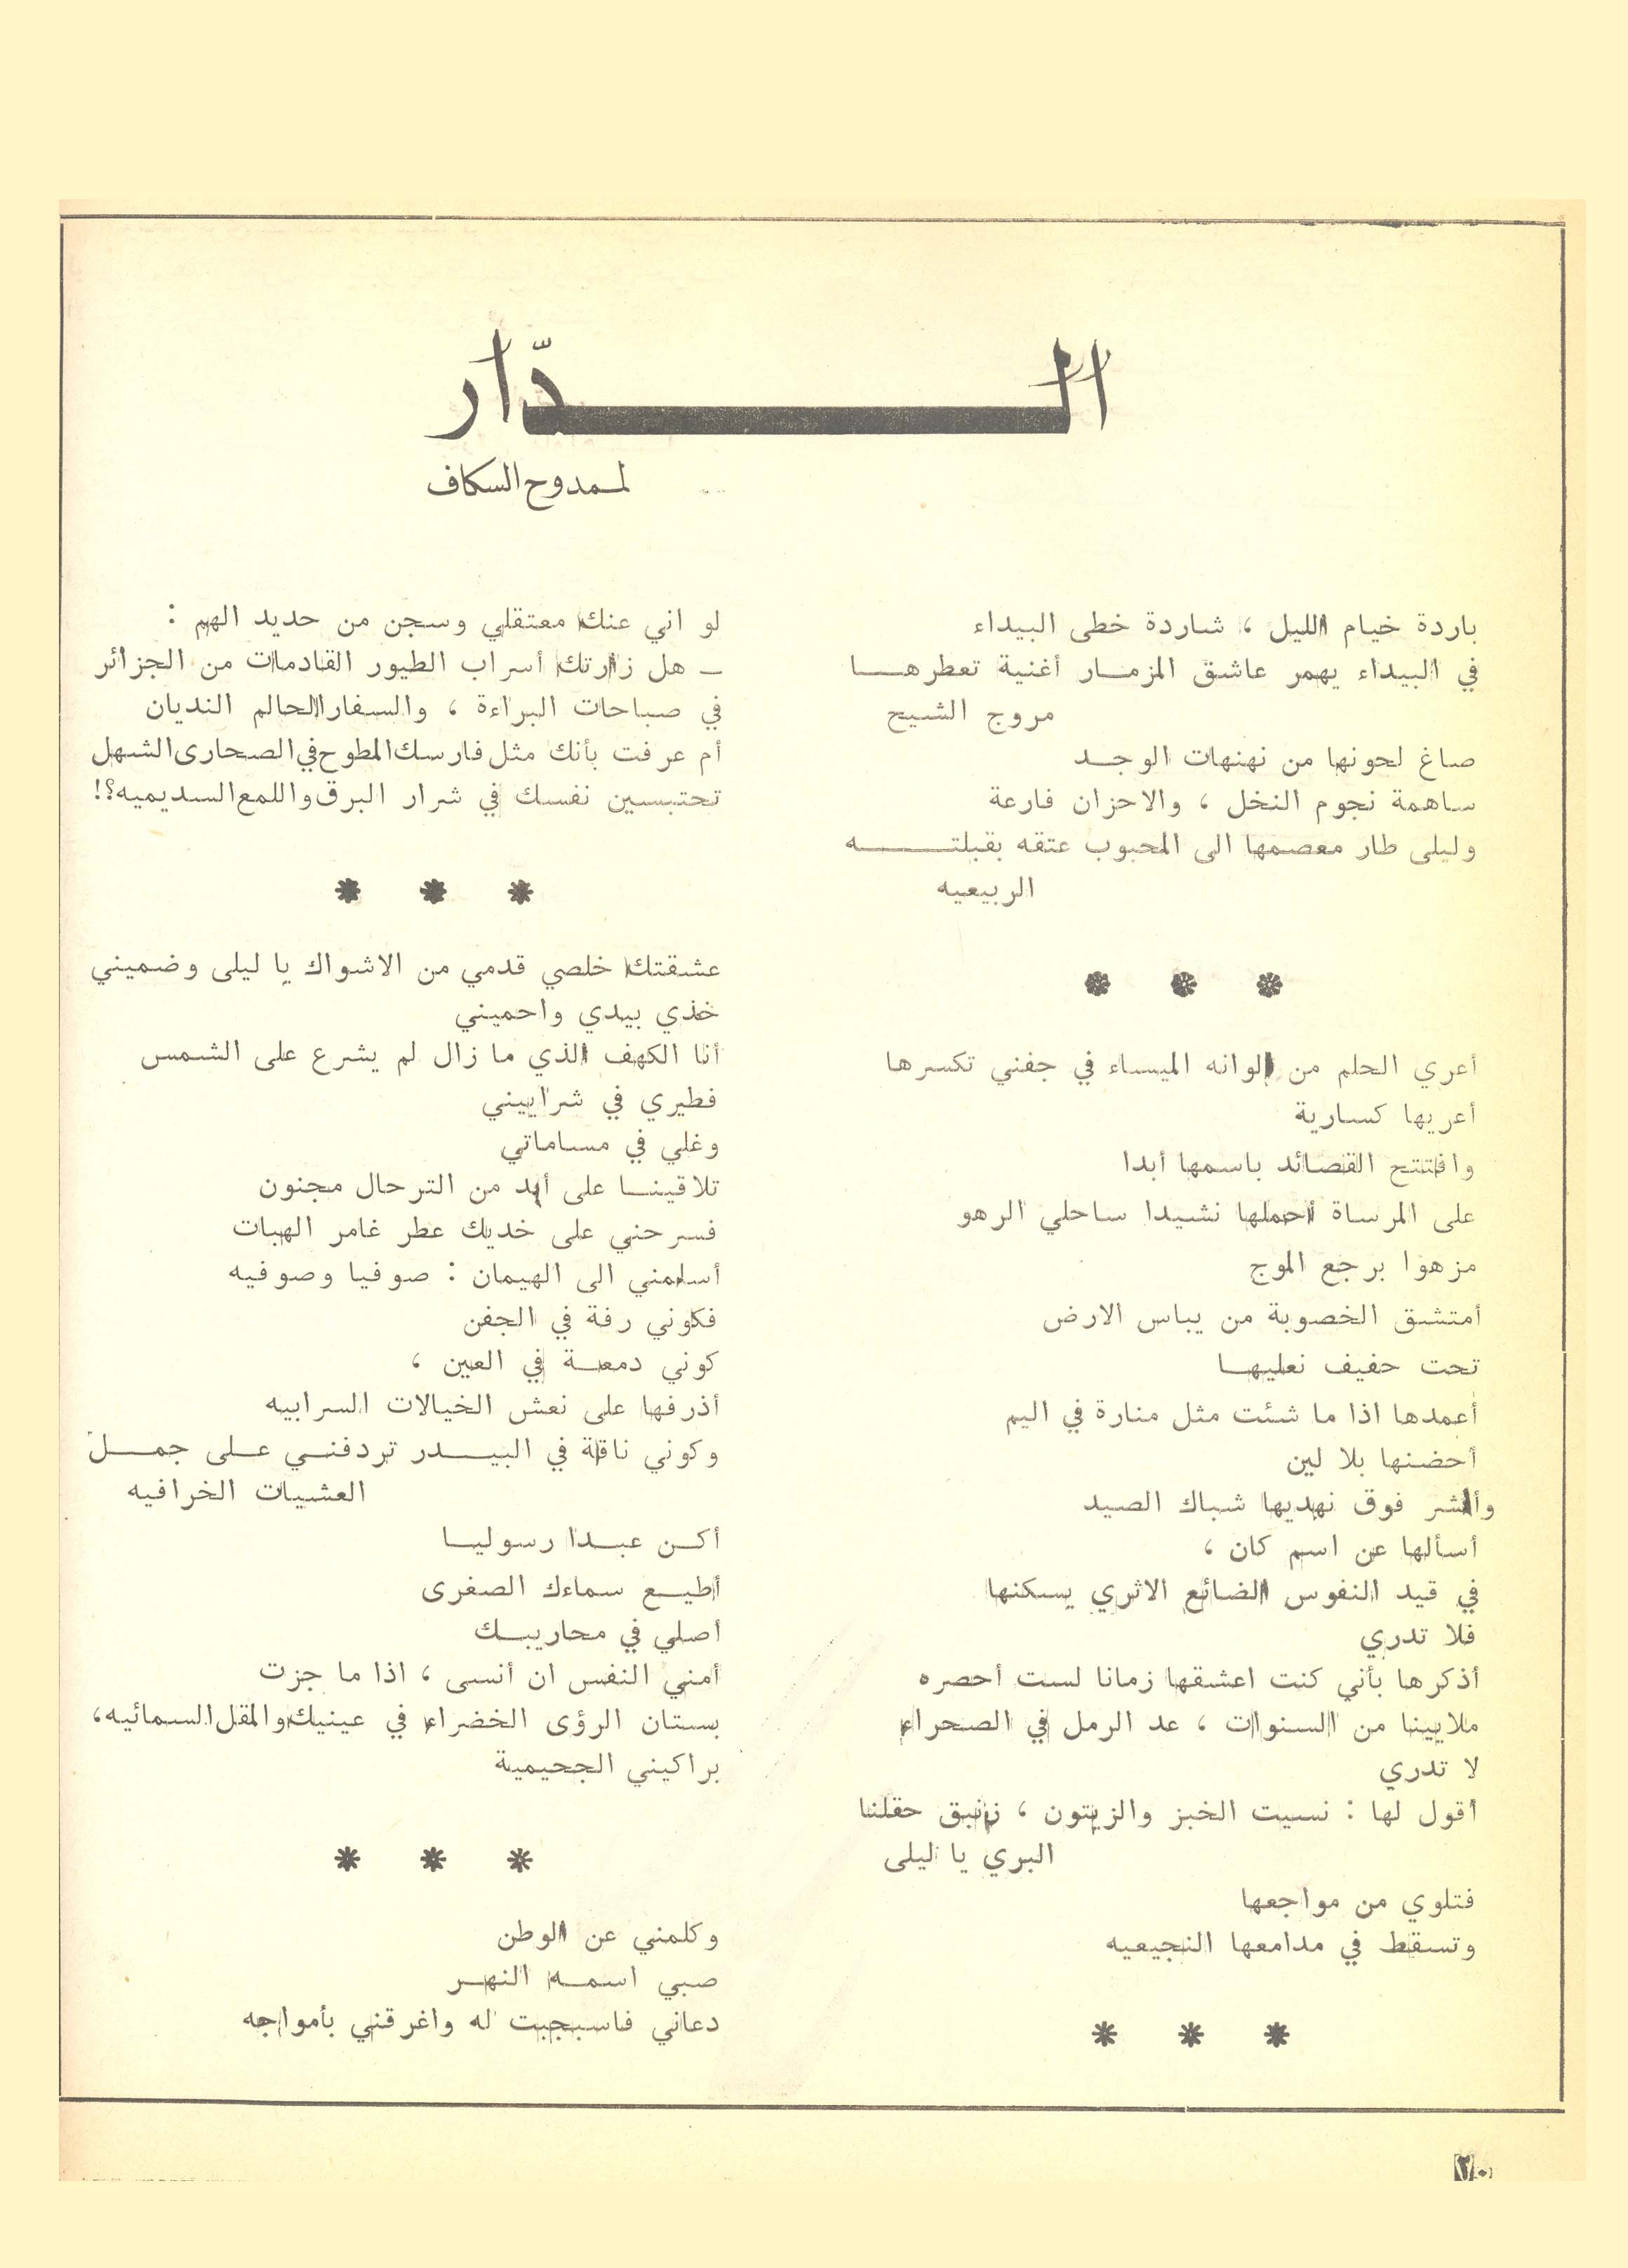 الــدّار
لممدوح السكاف
باردة خيام الليل ، شاردة خطى البيداء
في البيداء يهمر عاشق المزمــار أغنية تعطرهــا
مروج الشيح
صاغ لحونها من نهنهات الوجــد
ساهمة نجوم النخل ، والاحزان فارعة
وليلى طار معصمها الى المحبوب عتقه بقبلتــه
الربيعيه
* * *
أعري الحلم من الوانه الميساء في جفني تكسرها
أعريها كسارية
وافتتح القصائد باسمها أبدا
على المرساة أحملها نشيدا ساحلي الرهو
مزهوا برجع الموج
أمتشق الخصوبة من يباس الارض
تحت حفيف نعليهــا
أعمدها اذا ما شئت مثل منارة في اليم
أحضنها بلا لين
وأنشر فوق نهديها شباك الصيد
أسألها عن اسم كان ،
في قيد النفوس الضائع الاثري يسكنها
فلا تدري
أذكرها بأني كنت اعشقها زمانا لست أحصره
ملايينا من السنوات ، عد الرمل في الصحراء
لا تدري
أقول لها : نسيت الخبز والزيتون ، زنبق حقلنا
البري يا ليلى
فتلوي من مواجعها
وتسقط في مدامعها النجيعيه
* * *
لو اني عنك معتقلي وسجن من حديد الهم :
ــ هل زارتك أسراب الطيور القادمات من الجزائر
في صباحات البراءة ، والسفار الحالم النديان
أم عرفت بأنك مثل فارسك المطوح في الصحارى الشهل
تحتبسين نفسك في شرار البرق واللمع السديميه؟!
* * *
عشقتك خلصي قدمي من الاشواك يا ليلى وضميني
خذي بيدي واحميني
أنا الكهف الذي ما زال لم يشرع على الشمس
فطيري في شراييني
وغلي في مساماتي
تلاقينــا على أبد من الترحال مجنون
فسرحني على خديك عطر غامر الهبات
أسلمني الى الهيمان : صوفيا وصوفيه
فكوني رفة في الجفن
كوني دمعــة في العين ،
أذرفها على نعش الخيالات السرابيه
وكوني ناقة في البيــدر تردفنــي علــى جمــل
العشيات الخرافيه
أكــن عبــدا رسوليــا
أطيــع سماءك الصغرى
أصلي في محاريبــك
أمني النفس ان أنسى ، اذا ما جزت
بستان الرؤى الخضراء في عينيك والمقل السمائيه،
براكيني الجحيمية
* * *
وكلمني عن الوطن
صبي اسمــه النهــر
دعاني فاسبجبت له واغرقني بأمواجه
٢٠